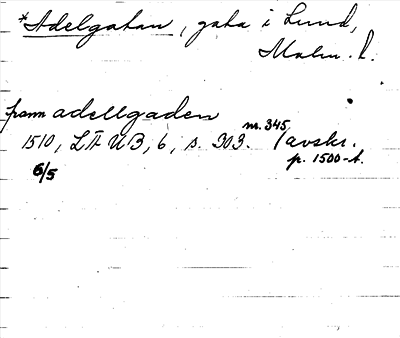 *Adelgatan, gata i Lund,
Malm. l.
framm adellgaden
nr. 345
1510, LÄUB, 6, s. 303. (avskr.
p. 1500-t.
6/5